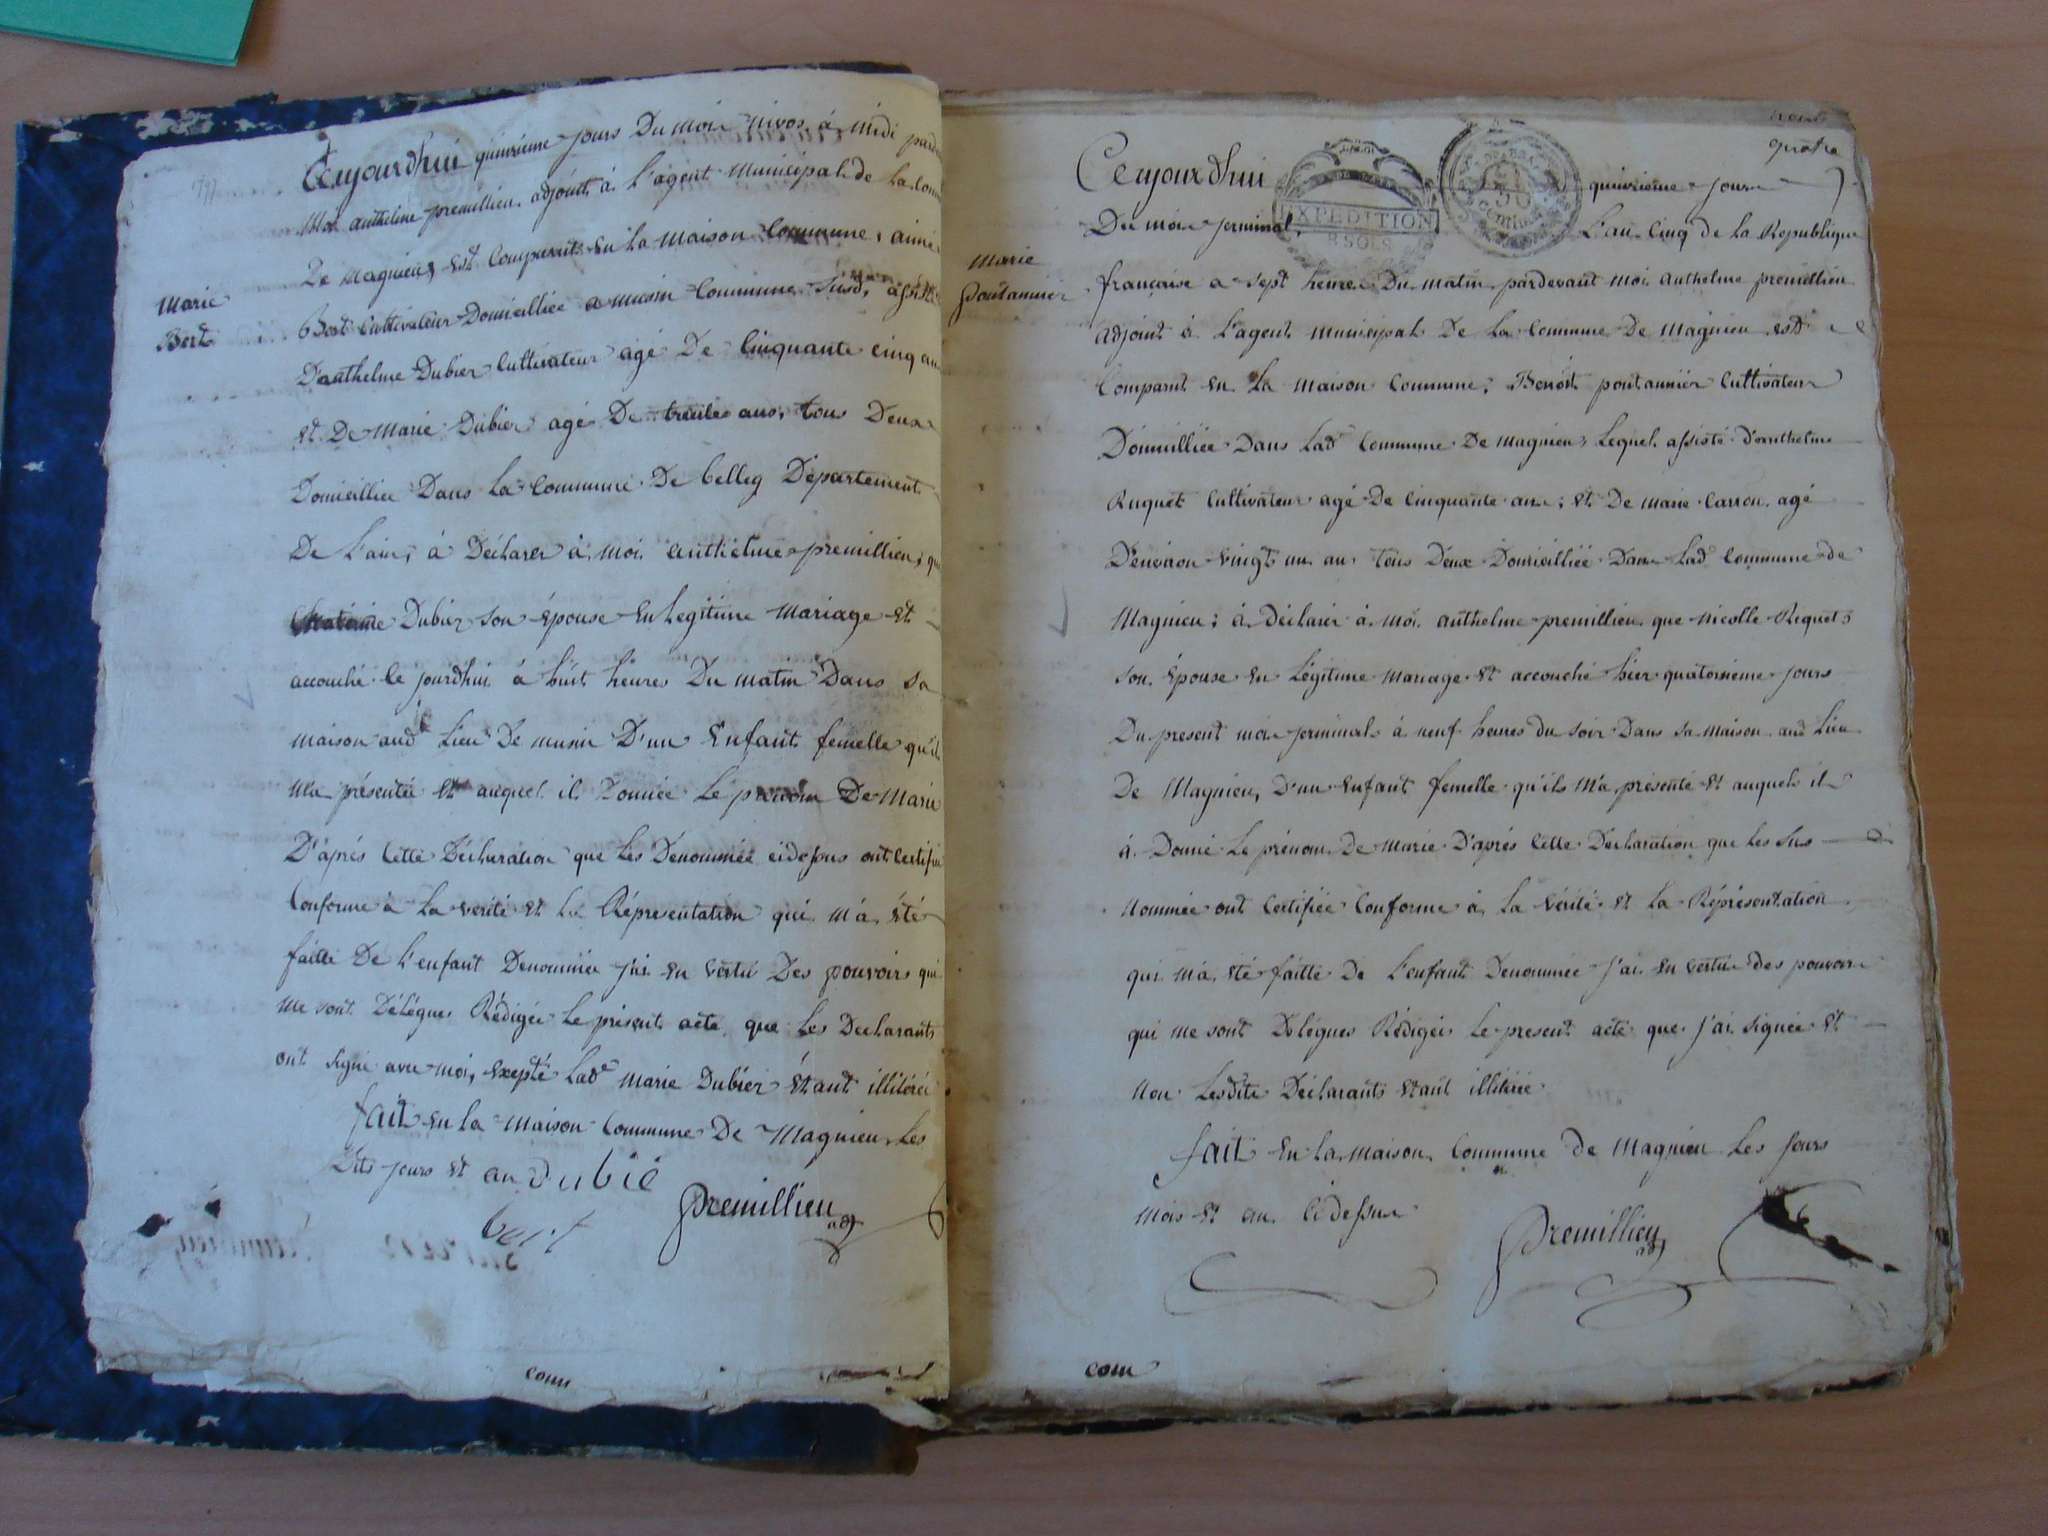 Cejourdhui quinzieme jours Du mois nivos à midi pard
Moi anthelme premillieu adjoint à L'agent Municipal de La Com
De Magnieu, est Comparut en la maison Commune, aimé
Marie
Bert
Bert Cultivateur Domicilliée a musin Commune susd, assisté
D'anthelme Dubier Cultivateur agé De Cinquante cinq an
et De Marie Dubier agé De trente ans, tous Deux
Domicilliée Dans La Commune De belley Département
De L'ain, à Déclarer à moi anthelme premillieu, qu
Dubier son épouse en Legitime Mariage et
accouché ce jourdhui à huit heures Du matin Dans sa
maison aud Lieu De musin D'un Enfant femelle qu'il
M'a présentée et auquel il Donnée Le prenom De Marie
D'après Cette Déclaration que Les Denommée cidessus ont Certifié
Conforme à La verité et La Réprésentation qui m'a été
faitte De L'enfant Denommée j'ai en vertu Des pouvoirs qui
Me sont Délégues Rédigée Le présent acte que Les Declarants
ont signé avec moi, excepté Lade Marie Dubier étant illitérée
fait en La Maison Commune De Magnieu Les
Dits jours et an Dubié
Premillieu
adj
bert
com
quatre
Cejourdhui quinzieme jour
EXPEDITION
8 SOLS
Du mois jerminal, L'an Cinq de La République
marie
poutannier
française a sept heures Du matin pardevant moi anthelme premillieu
adjoint à L'agent municipal De La Commune De Magnieu est
Comparut en La maison Commune, Benoit poutannier Cultivateur
Domicilliée Dans Lade Commune De magnieu, Lequel assisté d'anthelme
Ruquet Cultivateur agé De Cinquante ans; et De marie Carron agé
D'environ vingt un an tous Deux Domicilliée Dans Lad Commune de
Magnieu; à déclarer à moi anthelme premillieu que nicolle Riquet
son épouse en Légitime mariage et accouché hier quatorzieme jours
Du present mois jerminal à neuf heures du soir Dans sa maison aud Lieu
De Magnieu, D'un enfant femelle qu'ils M'a présenté et auquel il
à Donné Le prénom De marie D'après Cette Déclaration que Les sus
Nommée ont Certifiée Conforme à La vérité et La Réprésentation
qui m'a été faitte De L'enfant Denommée j'ai en vertu des pouvoirs
qui me sont Délégues Rédigée Le present acte que j'ai signée et
Non Lesdits Déclarants étant illitérée
fait en La maison Commune de Magnieu Les jours
Mois et an cidessus
Premillieu
adj
com